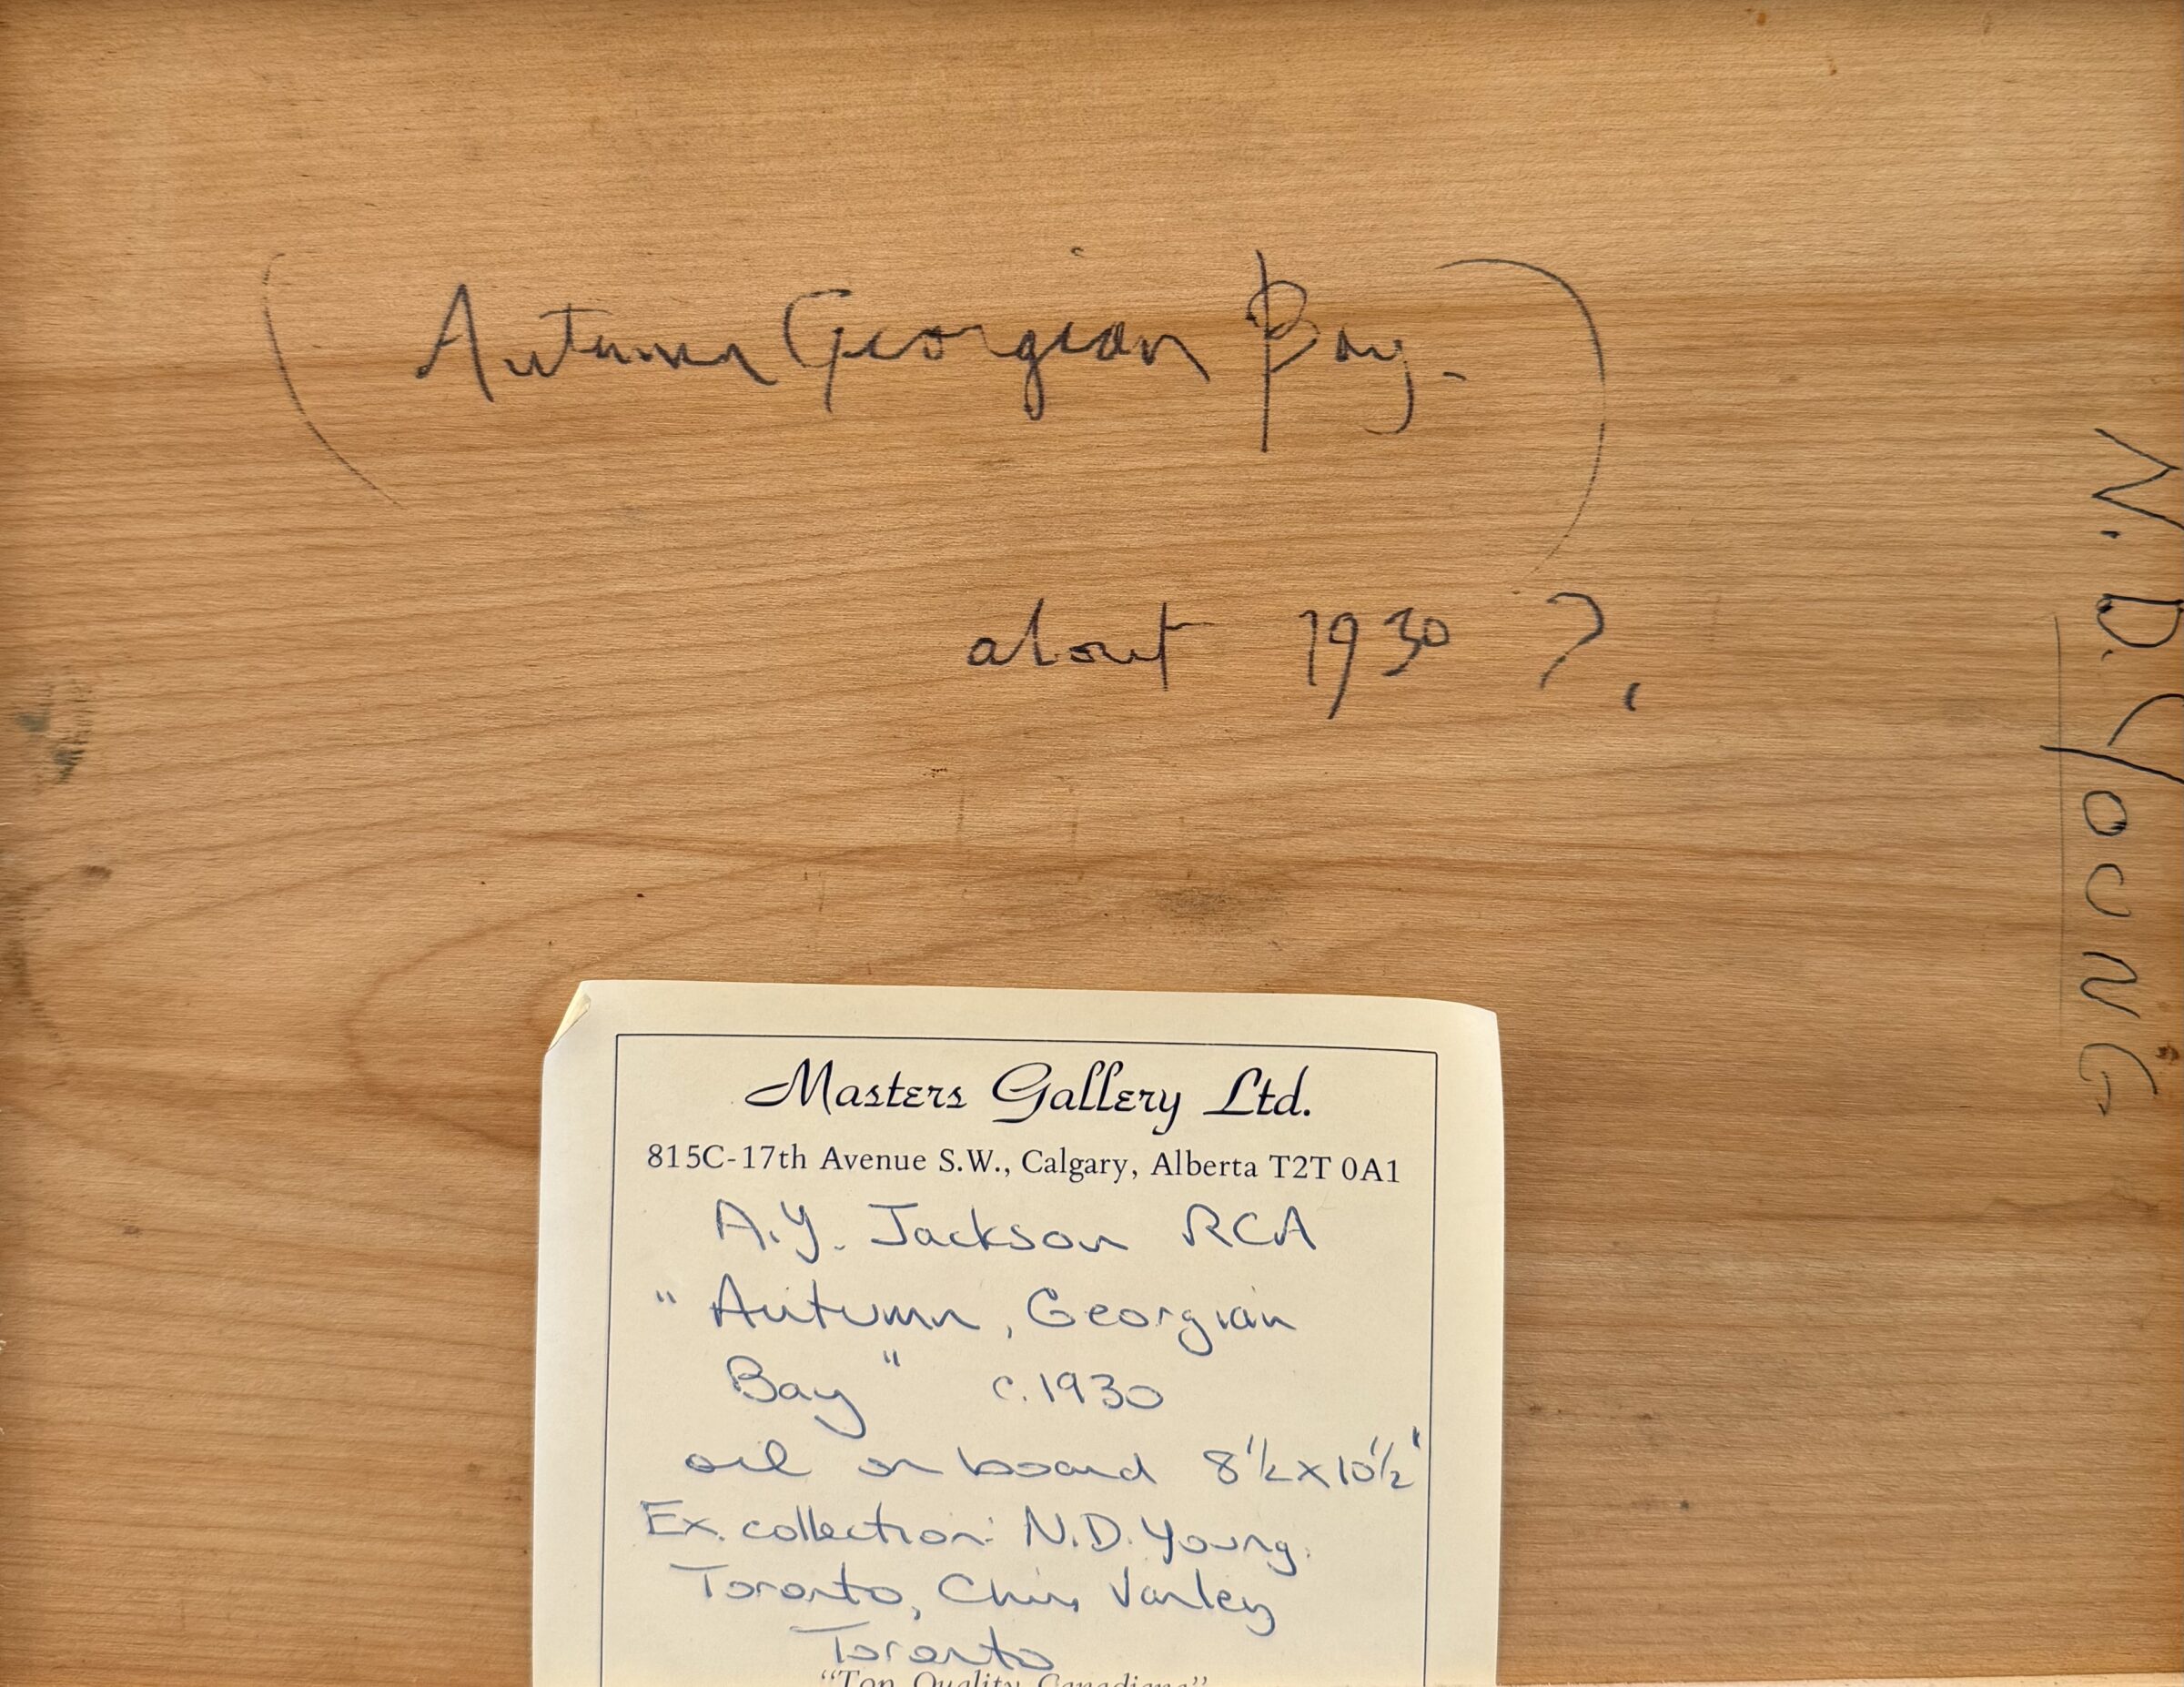 (Autumn Georgian Bay.)
about 1930 ?.
N.D. YOUNG
Masters Gallery Ltd.
815C-17th Avenue S.W., Calgary, Alberta T2T 0A1
A.Y. Jackson RCA
"Autumn, Georgian
Bay" c.1930
oil on board 8 1/2 x 10 1/2"
Ex. collection: N.D. Young.
Toronto, Chris Varley
Toronto
"Top Quality Canadians"